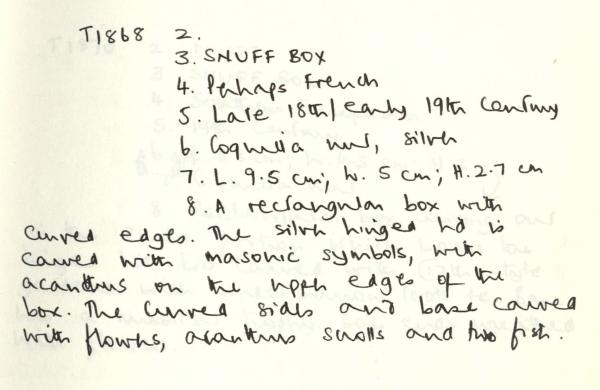 T1868 2.
3. SNUFF BOX
4. Perhaps French
5. Late 18th/early 19th century
6. Coquilla nut, silver
7. L. 9.5 cm; W. 5 cm; H. 2.7 cm
8. A rectangular box with
curved edges. The silver hinged lid is
carved with masonic symbols, with
acanthus on the upper edges of the
box. The curved sides and base carved
with flowers, acanthus scrolls and two fish.